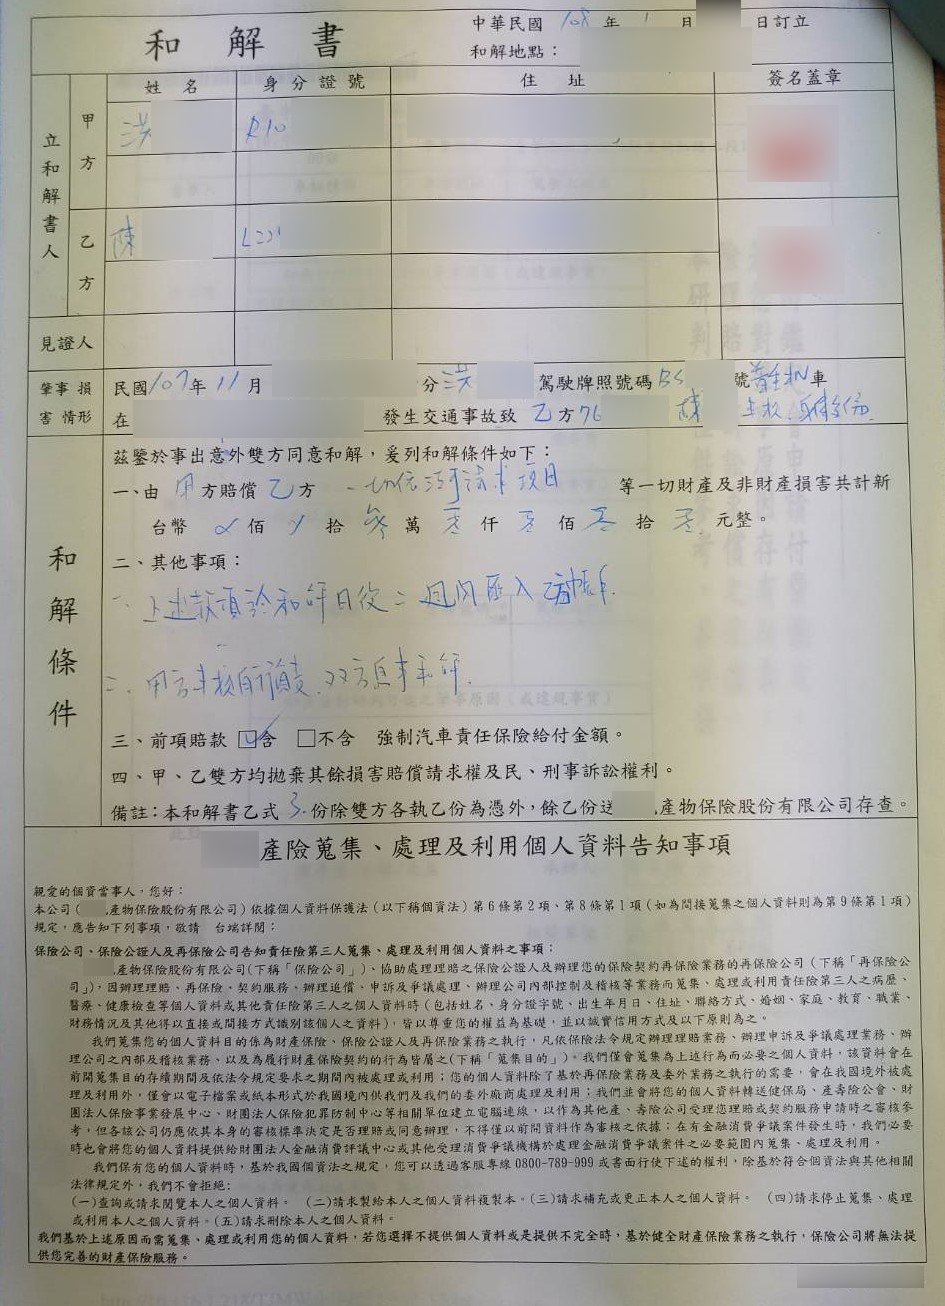 和解書
中華民國 108 年 1 月 日訂立
和解地點：
姓名 身分證號 住址 簽名蓋章
立和解書人
甲方
洪 R10
乙方
陳 L221
見證人
肇事損害情形
民國107年11月 分洪 駕駛牌照號碼BS 號 車
在 發生交通事故致乙方76 陳 車損、身体受傷
和解條件
茲鑒於事出意外雙方同意和解，爰列和解條件如下：
一、由 甲方賠償 乙方 一切依法可請求項目 等一切財產及非財產損害共計新
台幣 佰 拾 參 萬 零 仟 零 佰 零 拾 零 元整。
二、其他事項：
一、上述款項於和解日後二週內匯入乙方帳戶.
二、甲方車損自行負責、双方息事和解.
三、前項賠款 含 不含 強制汽車責任保險給付金額。
四、甲、乙雙方均拋棄其餘損害賠償請求權及民、刑事訴訟權利。
備註：本和解書乙式 3 份除雙方各執乙份為憑外，餘乙份送 產物保險股份有限公司存查。
產險蒐集、處理及利用個人資料告知事項
親愛的個資當事人，您好：
本公司( 產物保險股份有限公司)依據個人資料保護法(以下稱個資法)第6條第2項、第8條第1項(如為間接蒐集之個人資料則為第9條第1項)
規定，應告知下列事項，敬請 台端詳閱：
保險公司、保險公證人及再保險公司告知責任險第三人蒐集、處理及利用個人資料之事項：
產物保險股份有限公司(下稱「保險公司」)、協助處理理賠之保險公證人及辦理您的保險契約再保險業務的再保險公司(下稱「再保險公
司」)，因辦理理賠、再保險、契約服務、辦理追償、申訴及爭議處理、辦理公司內部控制及稽核等業務而蒐集、處理或利用責任險第三人之病歷、
醫療、健康檢查等個人資料或其他責任險第三人之個人資料時(包括姓名、身分證字號、出生年月日、住址、聯絡方式、婚姻、家庭、教育、職業、
財務情況及其他得以直接或間接方式識別該個人之資料)，皆以尊重您的權益為基礎，並以誠實信用方式及以下原則為之。
我們蒐集您的個人資料目的係為財產保險、保險公證人及再保險業務之執行，凡依保險法令規定辦理理賠業務、辦理申訴及爭議處理業務、辦
理公司之內部及稽核業務、以及為履行財產保險契約的行為皆屬之(下稱「蒐集目的」)。我們僅會蒐集為上述行為而必要之個人資料，該資料會在
前開蒐集目的存續期間及依法令規定要求之期間內被處理或利用；您的個人資料除了基於再保險業務及委外業務之執行的需要，會在我國境外被處
理及利用外，僅會以電子檔案或紙本形式於我國境內供我們及我們的委外廠商處理及利用；我們並會將您的個人資料轉送健保局、產壽險公會、財
團法人保險事業發展中心、財團法人保險犯罪防制中心等相關單位建立電腦連線，以作為其他產、壽險公司受理您理賠或契約服務申請時之審核參
考，但各該公司仍應依其本身的審核標準決定是否理賠或同意辦理，不得僅以前開資料作為審核之依據；在有金融消費爭議案件發生時，我們必要
時也會將您的個人資料提供給財團法人金融消費評議中心或其他受理消費爭議機構於處理金融消費爭議案件之必要範圍內蒐集、處理及利用。
我們保有您的個人資料時，基於我國個資法之規定，您可以透過客服專線0800-789-999或書面行使下述的權利，除基於符合個資法與其他相關
法律規定外，我們不會拒絕：
(一)查詢或請求閱覽本人之個人資料。 (二)請求製給本人之個人資料複製本。(三)請求補充或更正本人之個人資料。 (四)請求停止蒐集、處理
或利用本人之個人資料。(五)請求刪除本人之個人資料。
我們基於上述原因而需蒐集、處理或利用您的個人資料，若您選擇不提供個人資料或是提供不完全時，基於健全財產保險業務之執行，保險公司將無法提
供您完善的財產保險服務。